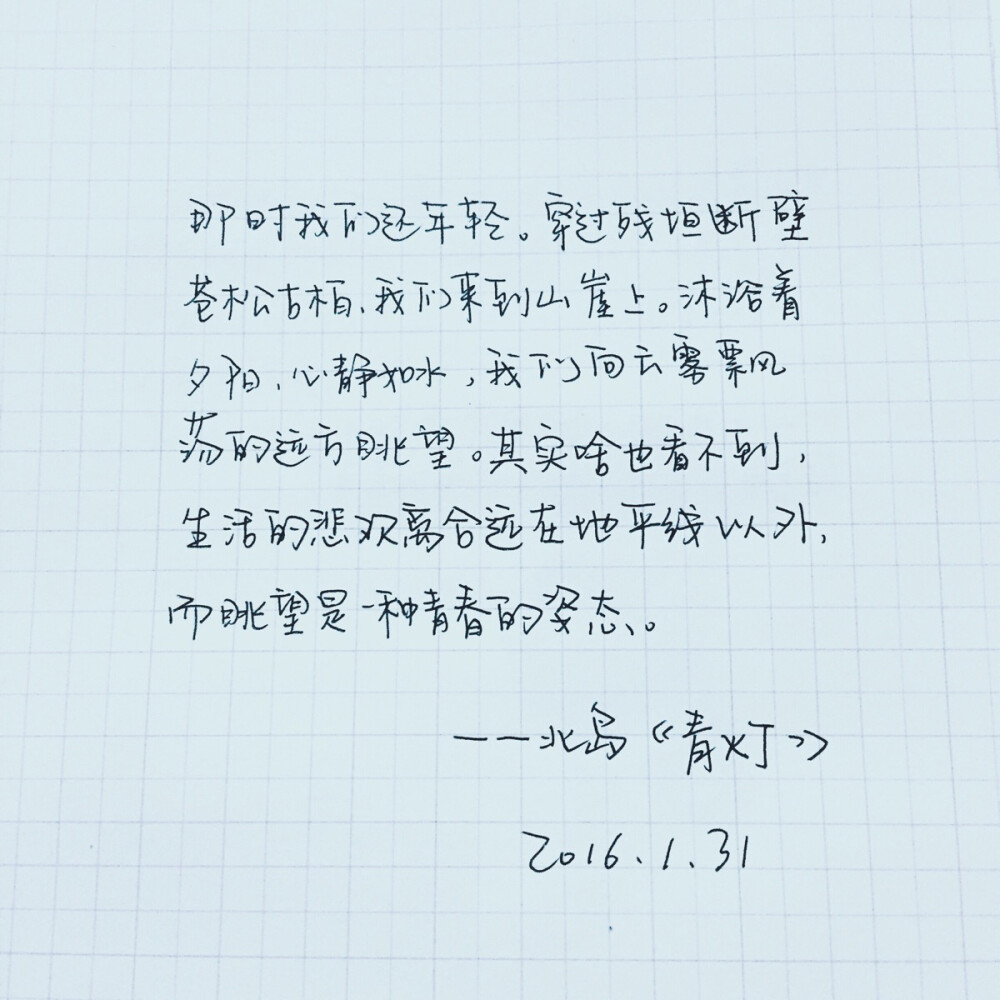 那时我们还年轻。穿过残垣断壁
苍松古柏、我们来到山崖上。沐浴着
夕阳、心静如水，我们向云雾飘
荡的远方眺望。其实啥也看不到，
生活的悲欢离合远在地平线以外，
而眺望是一种青春的姿态。
——北岛《青灯》
2016.1.31